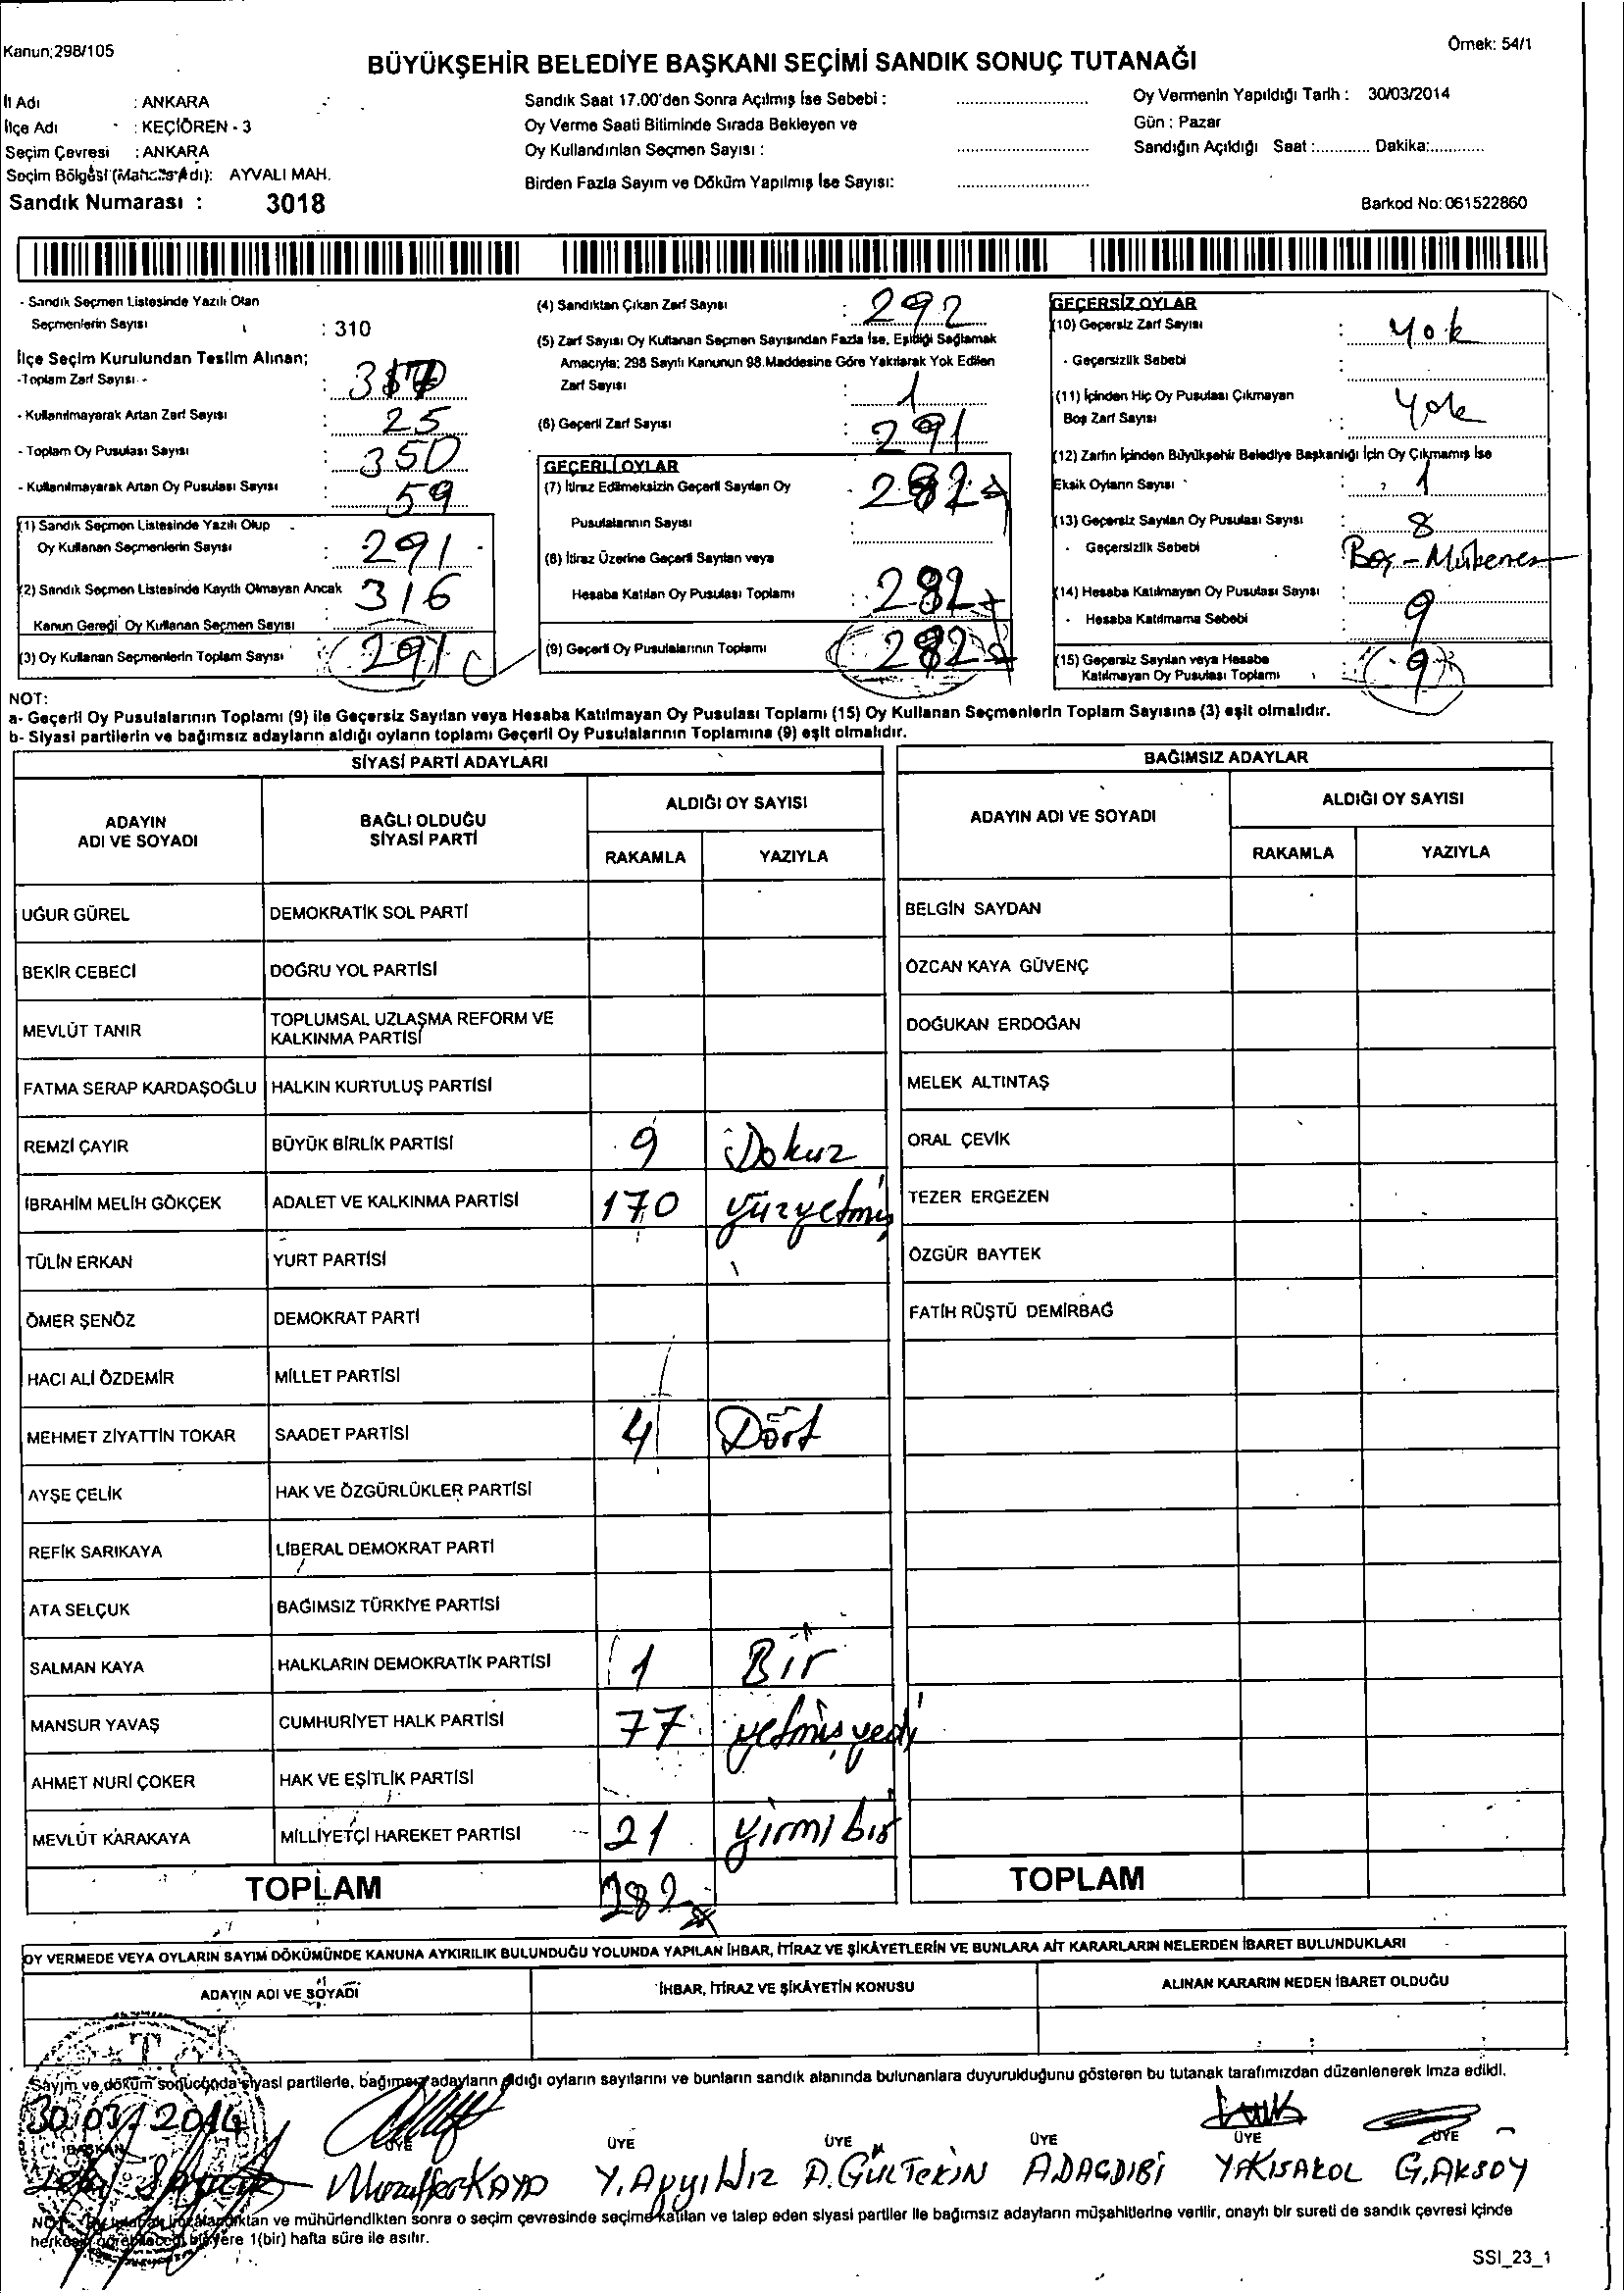 Kanun;298/105
Örnek: 54/1
BÜYÜKŞEHİR BELEDİYE BAŞKANI SEÇİMİ SANDIK SONUÇ TUTANAĞI
İl Adı : ANKARA
İlçe Adı : KEÇİÖREN - 3
Seçim Çevresi : ANKARA
Seçim Bölgesi (Mahalle Adı): AYVALI MAH.
Sandık Numarası : 3018
Sandık Saat 17.00'den Sonra Açılmış İse Sebebi :
Oy Verme Saati Bitiminde Sırada Bekleyen ve
Oy Kullandırılan Seçmen Sayısı :
Birden Fazla Sayım ve Döküm Yapılmış İse Sayısı:
Oy Vermenin Yapıldığı Tarih : 30/03/2014
Gün : Pazar
Sandığın Açıldığı Saat :............ Dakika:............
Barkod No: 061522860
- Sandık Seçmen Listesinde Yazılı Olan
Seçmenlerin Sayısı : 310
İlçe Seçim Kurulundan Teslim Alınan;
-Toplam Zarf Sayısı :
- Kullanılmayarak Artan Zarf Sayısı : 25
- Toplam Oy Pusulası Sayısı : 350
- Kullanılmayarak Artan Oy Pusulası Sayısı : 59
(1) Sandık Seçmen Listesinde Yazılı Olup
Oy Kullanan Seçmenlerin Sayısı : 291
(2) Sandık Seçmen Listesinde Kayıtlı Olmayan Ancak 316
Kanun Gereği Oy Kullanan Seçmen Sayısı
(3) Oy Kullanan Seçmenlerin Toplam Sayısı 291
(4) Sandıktan Çıkan Zarf Sayısı : 292
(5) Zarf Sayısı Oy Kullanan Seçmen Sayısından Fazla İse, Eşitliği Sağlamak
Amacıyla; 298 Sayılı Kanunun 98.Maddesine Göre Yakılarak Yok Edilen
Zarf Sayısı : 1
(6) Geçerli Zarf Sayısı : 291
GEÇERLİ OYLAR
(7) İtiraz Edilmeksizin Geçerli Sayılan Oy 282
Pusulalarının Sayısı
(8) İtiraz Üzerine Geçerli Sayılan veya
Hesaba Katılan Oy Pusulası Toplamı : 282
(9) Geçerli Oy Pusulalarının Toplamı 282
GEÇERSİZ OYLAR
(10) Geçersiz Zarf Sayısı : Yok
- Geçersizlik Sebebi :
(11) İçinden Hiç Oy Pusulası Çıkmayan
Boş Zarf Sayısı : Yok
(12) Zarfın İçinden Büyükşehir Belediye Başkanlığı İçin Oy Çıkmamış İse
Eksik Oyların Sayısı : 1
(13) Geçersiz Sayılan Oy Pusulası Sayısı : 8
- Geçersizlik Sebebi : Boş - Mükerrer
(14) Hesaba Katılmayan Oy Pusulası Sayısı : 9
- Hesaba Katılmama Sebebi
(15) Geçersiz Sayılan veya Hesaba
Katılmayan Oy Pusulası Toplamı : 9
NOT:
a- Geçerli Oy Pusulalarının Toplamı (9) ile Geçersiz Sayılan veya Hesaba Katılmayan Oy Pusulası Toplamı (15) Oy Kullanan Seçmenlerin Toplam Sayısına (3) eşit olmalıdır.
b- Siyasi partilerin ve bağımsız adayların aldığı oyların toplamı Geçerli Oy Pusulalarının Toplamına (9) eşit olmalıdır.
SİYASİ PARTİ ADAYLARI
ADAYIN ADI VE SOYADI
BAĞLI OLDUĞU SİYASİ PARTİ
ALDIĞI OY SAYISI
RAKAMLA YAZIYLA
UĞUR GÜREL DEMOKRATİK SOL PARTİ
BEKİR CEBECİ DOĞRU YOL PARTİSİ
MEVLÜT TANIR TOPLUMSAL UZLAŞMA REFORM VE KALKINMA PARTİSİ
FATMA SERAP KARDAŞOĞLU HALKIN KURTULUŞ PARTİSİ
REMZİ ÇAYIR BÜYÜK BİRLİK PARTİSİ 9 Dokuz
İBRAHİM MELİH GÖKÇEK ADALET VE KALKINMA PARTİSİ 170 yüzyetmiş
TÜLİN ERKAN YURT PARTİSİ
ÖMER ŞENÖZ DEMOKRAT PARTİ
HACI ALİ ÖZDEMİR MİLLET PARTİSİ
MEHMET ZİYATTİN TOKAR SAADET PARTİSİ 4 Dört
AYŞE ÇELİK HAK VE ÖZGÜRLÜKLER PARTİSİ
REFİK SARIKAYA LİBERAL DEMOKRAT PARTİ
ATA SELÇUK BAĞIMSIZ TÜRKİYE PARTİSİ
SALMAN KAYA HALKLARIN DEMOKRATİK PARTİSİ 1 Bir
MANSUR YAVAŞ CUMHURİYET HALK PARTİSİ 77 yetmişyedi
AHMET NURİ ÇOKER HAK VE EŞİTLİK PARTİSİ
MEVLÜT KARAKAYA MİLLİYETÇİ HAREKET PARTİSİ 21 yirmi bir
TOPLAM 282
BAĞIMSIZ ADAYLAR
ADAYIN ADI VE SOYADI
ALDIĞI OY SAYISI
RAKAMLA YAZIYLA
BELGİN SAYDAN
ÖZCAN KAYA GÜVENÇ
DOĞUKAN ERDOĞAN
MELEK ALTINTAŞ
ORAL ÇEVİK
TEZER ERGEZEN
ÖZGÜR BAYTEK
FATİH RÜŞTÜ DEMİRBAĞ
TOPLAM
OY VERMEDE VEYA OYLARIN SAYIM DÖKÜMÜNDE KANUNA AYKIRILIK BULUNDUĞU YOLUNDA YAPILAN İHBAR, İTİRAZ VE ŞİKAYETLERİN VE BUNLARA AİT KARARLARIN NELERDEN İBARET BULUNDUKLARI
ADAYIN ADI VE SOYADI İHBAR, İTİRAZ VE ŞİKAYETİN KONUSU ALINAN KARARIN NEDEN İBARET OLDUĞU
Sayım ve döküm sonucunda siyasi partilerle, bağımsız adayların aldığı oyların sayılarını ve bunların sandık alanında bulunanlara duyurulduğunu gösteren bu tutanak tarafımızdan düzenlenerek imza edildi.
30/03/2014
BAŞKAN ÜYE ÜYE ÜYE ÜYE ÜYE ÜYE
Muzaffer KAYA Y.Ayyıldız A.GÜLTEKİN A.DAGDIBİ G.AKSOY
NOT: Bu tutanak imzalandıktan ve mühürlendikten sonra o seçim çevresinde seçime katılan ve talep eden siyasi partiler ile bağımsız adayların müşahitlerine verilir, onaylı bir sureti de sandık çevresi içinde
herkesin görebileceği bir yere 1(bir) hafta süre ile asılır.
SSI_23_1